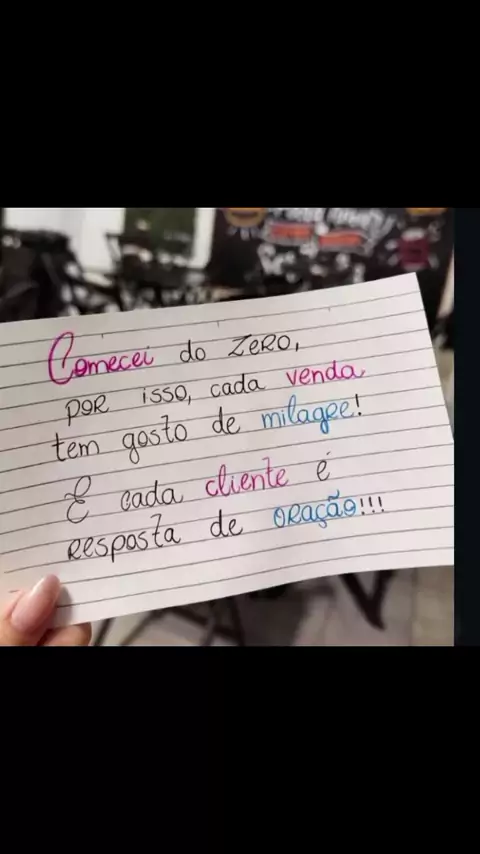 Comecei do ZERO,
POR isso, cada venda
tem gosto de milagre!
E cada cliente é
RESPOSTA de ORAÇÃO!!!